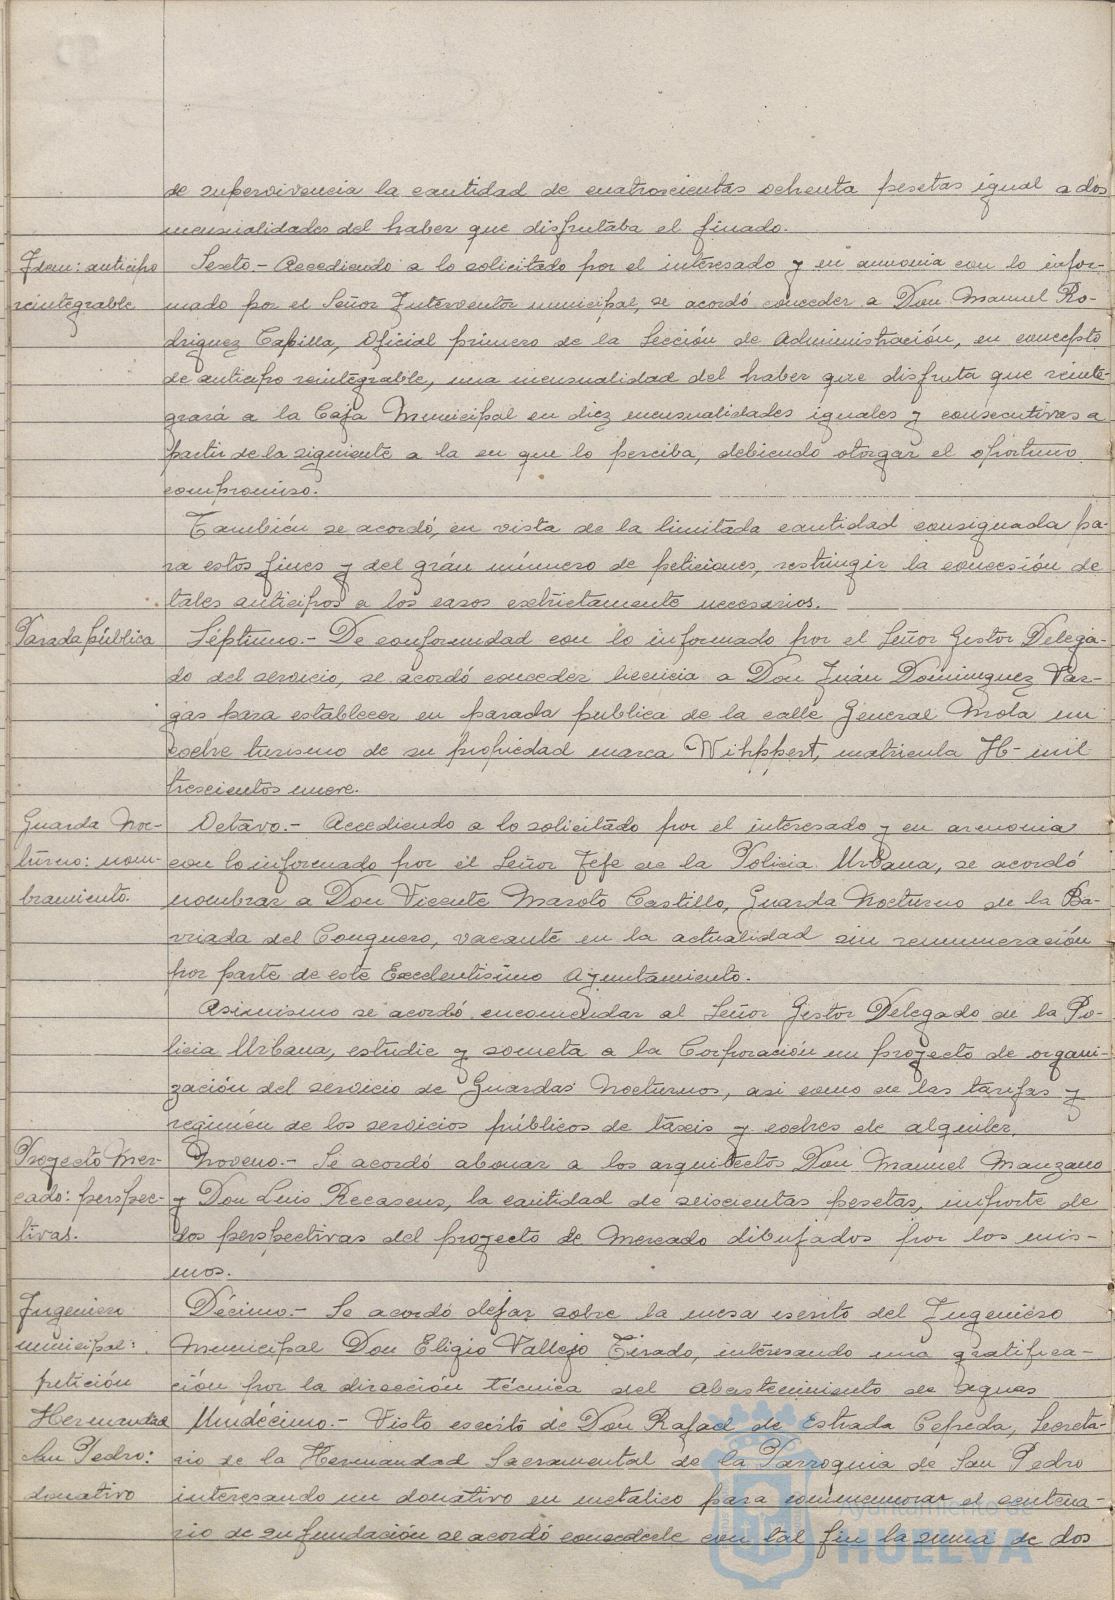 de supervivencia la cantidad de cuatrocientas ochenta pesetas igual a dos
mensualidades del haber que disfrutaba el finado.
Idem: anticipo
reintegrable
Sexto.- Accediendo a lo solicitado por el interesado y en armonia con lo infor-
mado por el Señor Interventor municipal, se acordó conceder a Don Manuel Ro-
driguez Capilla, Oficial primero de la Sección de Administración, en concepto
de anticipo reintegrable, una mensualidad del haber que disfruta que reinte-
grará a la Caja Municipal en diez mensualidades iguales y consecutivas a
partir de la siguiente a la en que lo perciba, debiendo otorgar el oportuno
compromiso.
También se acordó, en vista de la limitada cantidad consignada pa-
ra estos fines y del grán número de peticiones, restringir la concesión de
tales anticipos a los casos estrictamente necesarios.
Parada pública
Séptimo.- De conformidad con lo informado por el Señor Gestor Delega-
do del servicio, se acordó conceder licencia a Don Juán Dominguez Var-
gas para establecer en parada publica de la calle General Mola un
coche turismo de su propiedad marca Wihppert, matricula H- mil
trescientos nueve.
Guarda Noc-
turno: nom-
bramiento.
Octavo.- Accediendo a lo solicitado por el interesado y en armonia
con lo informado por el Señor Jefe de la Policia Urbana, se acordó
nombrar a Don Vicente Maroto Castillo, Guarda Nocturno de la Ba-
rriada del Conquero, vacante en la actualidad sin remuneración
por parte de este Excelentisimo Ayuntamiento.
Asimismo se acordó encomendar al Señor Gestor Delegado de la Po-
licia Urbana, estudie y someta a la Corporación un proyecto de organi-
zación del servicio de Guardas Nocturnos, asi como de las tarifas y
regimén de los servicios públicos de taxis y coches de alquiler.
Proyecto Mer-
cado: perspec-
tivas.
Noveno.- Se acordó abonar a los arquitectos Don Manuel Manzano
y Don Luis Recasens, la cantidad de seiscientas pesetas, importe de
dos perspectivas del proyecto de Mercado dibujados por los mis-
mos.
Ingeniero
municipal:
petición
Décimo.- Se acordó dejar sobre la mesa escrito del Ingeniero
Municipal Don Eligio Vallejo Tirado, interesando una gratifica-
ción por la dirección técnica del abastecimiento de aguas
Hermandad
San Pedro:
donativo
Undécimo.- Visto escrito de Don Rafael de Estrada Cepeda, Secreta-
rio de la Hermandad Sacramental de la Parroquia de San Pedro
interesando un donativo en metálico para conmemorar el centena-
rio de su fundación se acordó concederle con tal fin la suma de dos
Ayuntamiento de
HUELVA